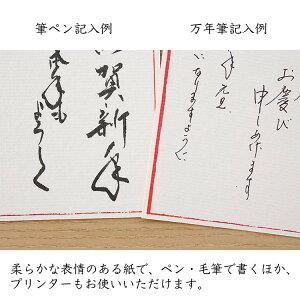 筆ペン記入例
万年筆記入例
賀新年
本年も
よろしく
お慶び
申しあげます
年元旦
になりますように
柔らかな表情のある紙で、ペン・毛筆で書くほか、
プリンターもお使いいただけます。